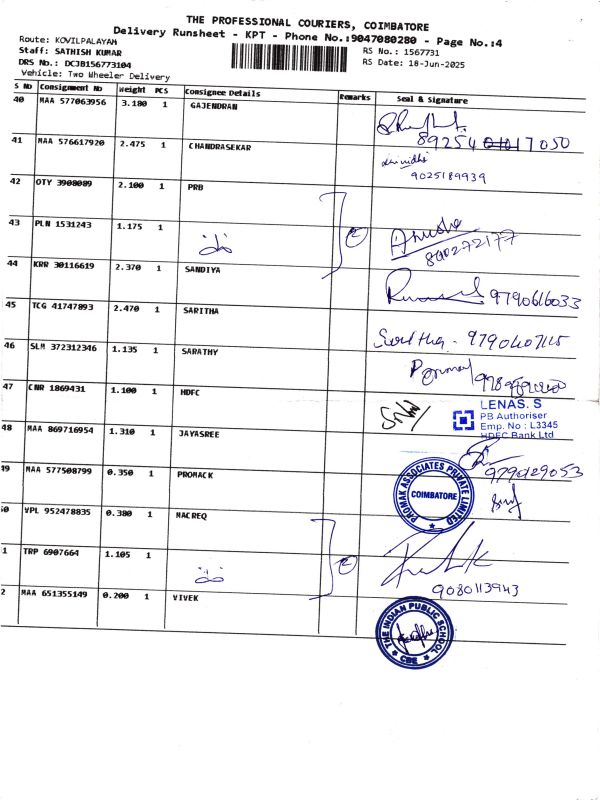 THE PROFESSIONAL COURIERS, COIMBATORE
Delivery Runsheet - KPT - Phone No.:9047080280 - Page No.:4
Route: KOVILPALAYAM
Staff: SATHISH KUMAR
DRS No.: DCJB156773104
Vehicle: Two Wheeler Delivery
RS No.: 1567731
RS Date: 18-Jun-2025
S No Consignment No Weight PCS Consignee Details Remarks Seal & Signature
40 MAA 577063956 3.180 1 GAJENDRAN
89254 17050
41 MAA 576617920 2.475 1 CHANDRASEKAR
9025189939
42 OTY 3908089 2.100 1 PRB
43 PLN 1531243 1.175 1
Anusha
44 KRR 30116619 2.370 1 SANDIYA
9790616033
45 TCG 41747893 2.470 1 SARITHA
46 SLM 372312346 1.135 1 SARATHY
47 CNR 1869431 1.100 1 HDFC
LENAS. S
PB Authoriser
Emp. No : L3345
HDFC Bank Ltd
48 MAA 869716954 1.310 1 JAYASREE
9790129053
49 MAA 577508799 0.350 1 PROMACK
PROMAK ASSOCIATES PRIVATE LIMITED
COIMBATORE
50 VPL 952478835 0.380 1 MACREQ
1 TRP 6907664 1.105 1
9080113943
2 MAA 651355149 0.200 1 VIVEK
THE INDIAN PUBLIC SCHOOL
CBE